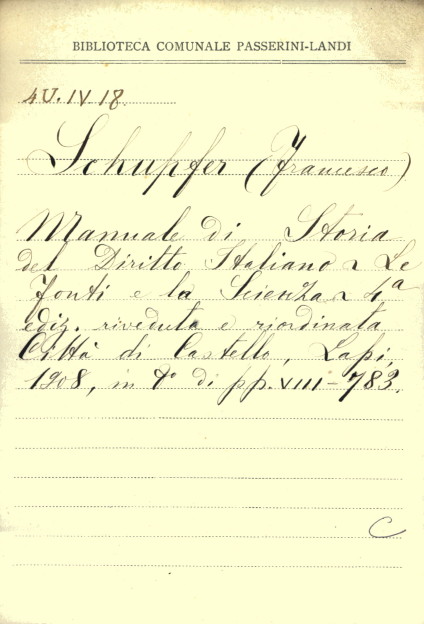 BIBLIOTECA COMUNALE PASSERINI-LANDI
4U.IV 18.
Schupfer (Francesco)
Manuale di Storia
del Diritto Italiano ~ Le
fonti e la Scienza ~ 4ª
ediz. riveduta e riordinata
Città di Castello, Lapi,
1908, in 4º di pp. VIII-783.
C